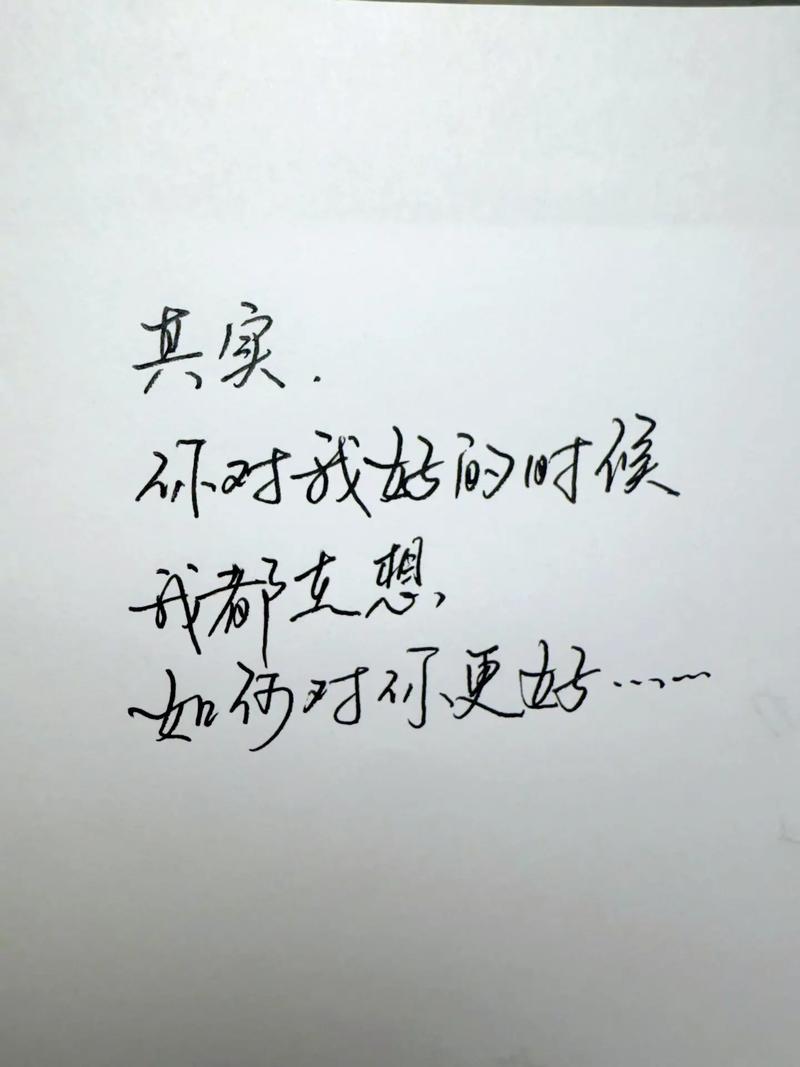 其实.
你对我好的时候
我都在想,
如何对你更好……